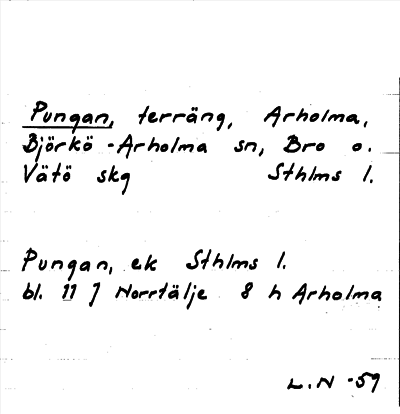 Pungan, terräng, Arholma,
Björkö-Arholma sn, Bro o.
Vätö skg Sthlms l.
Pungan, ek Sthlms l.
bl. 11 J Norrtälje 8 h Arholma
L.N -59